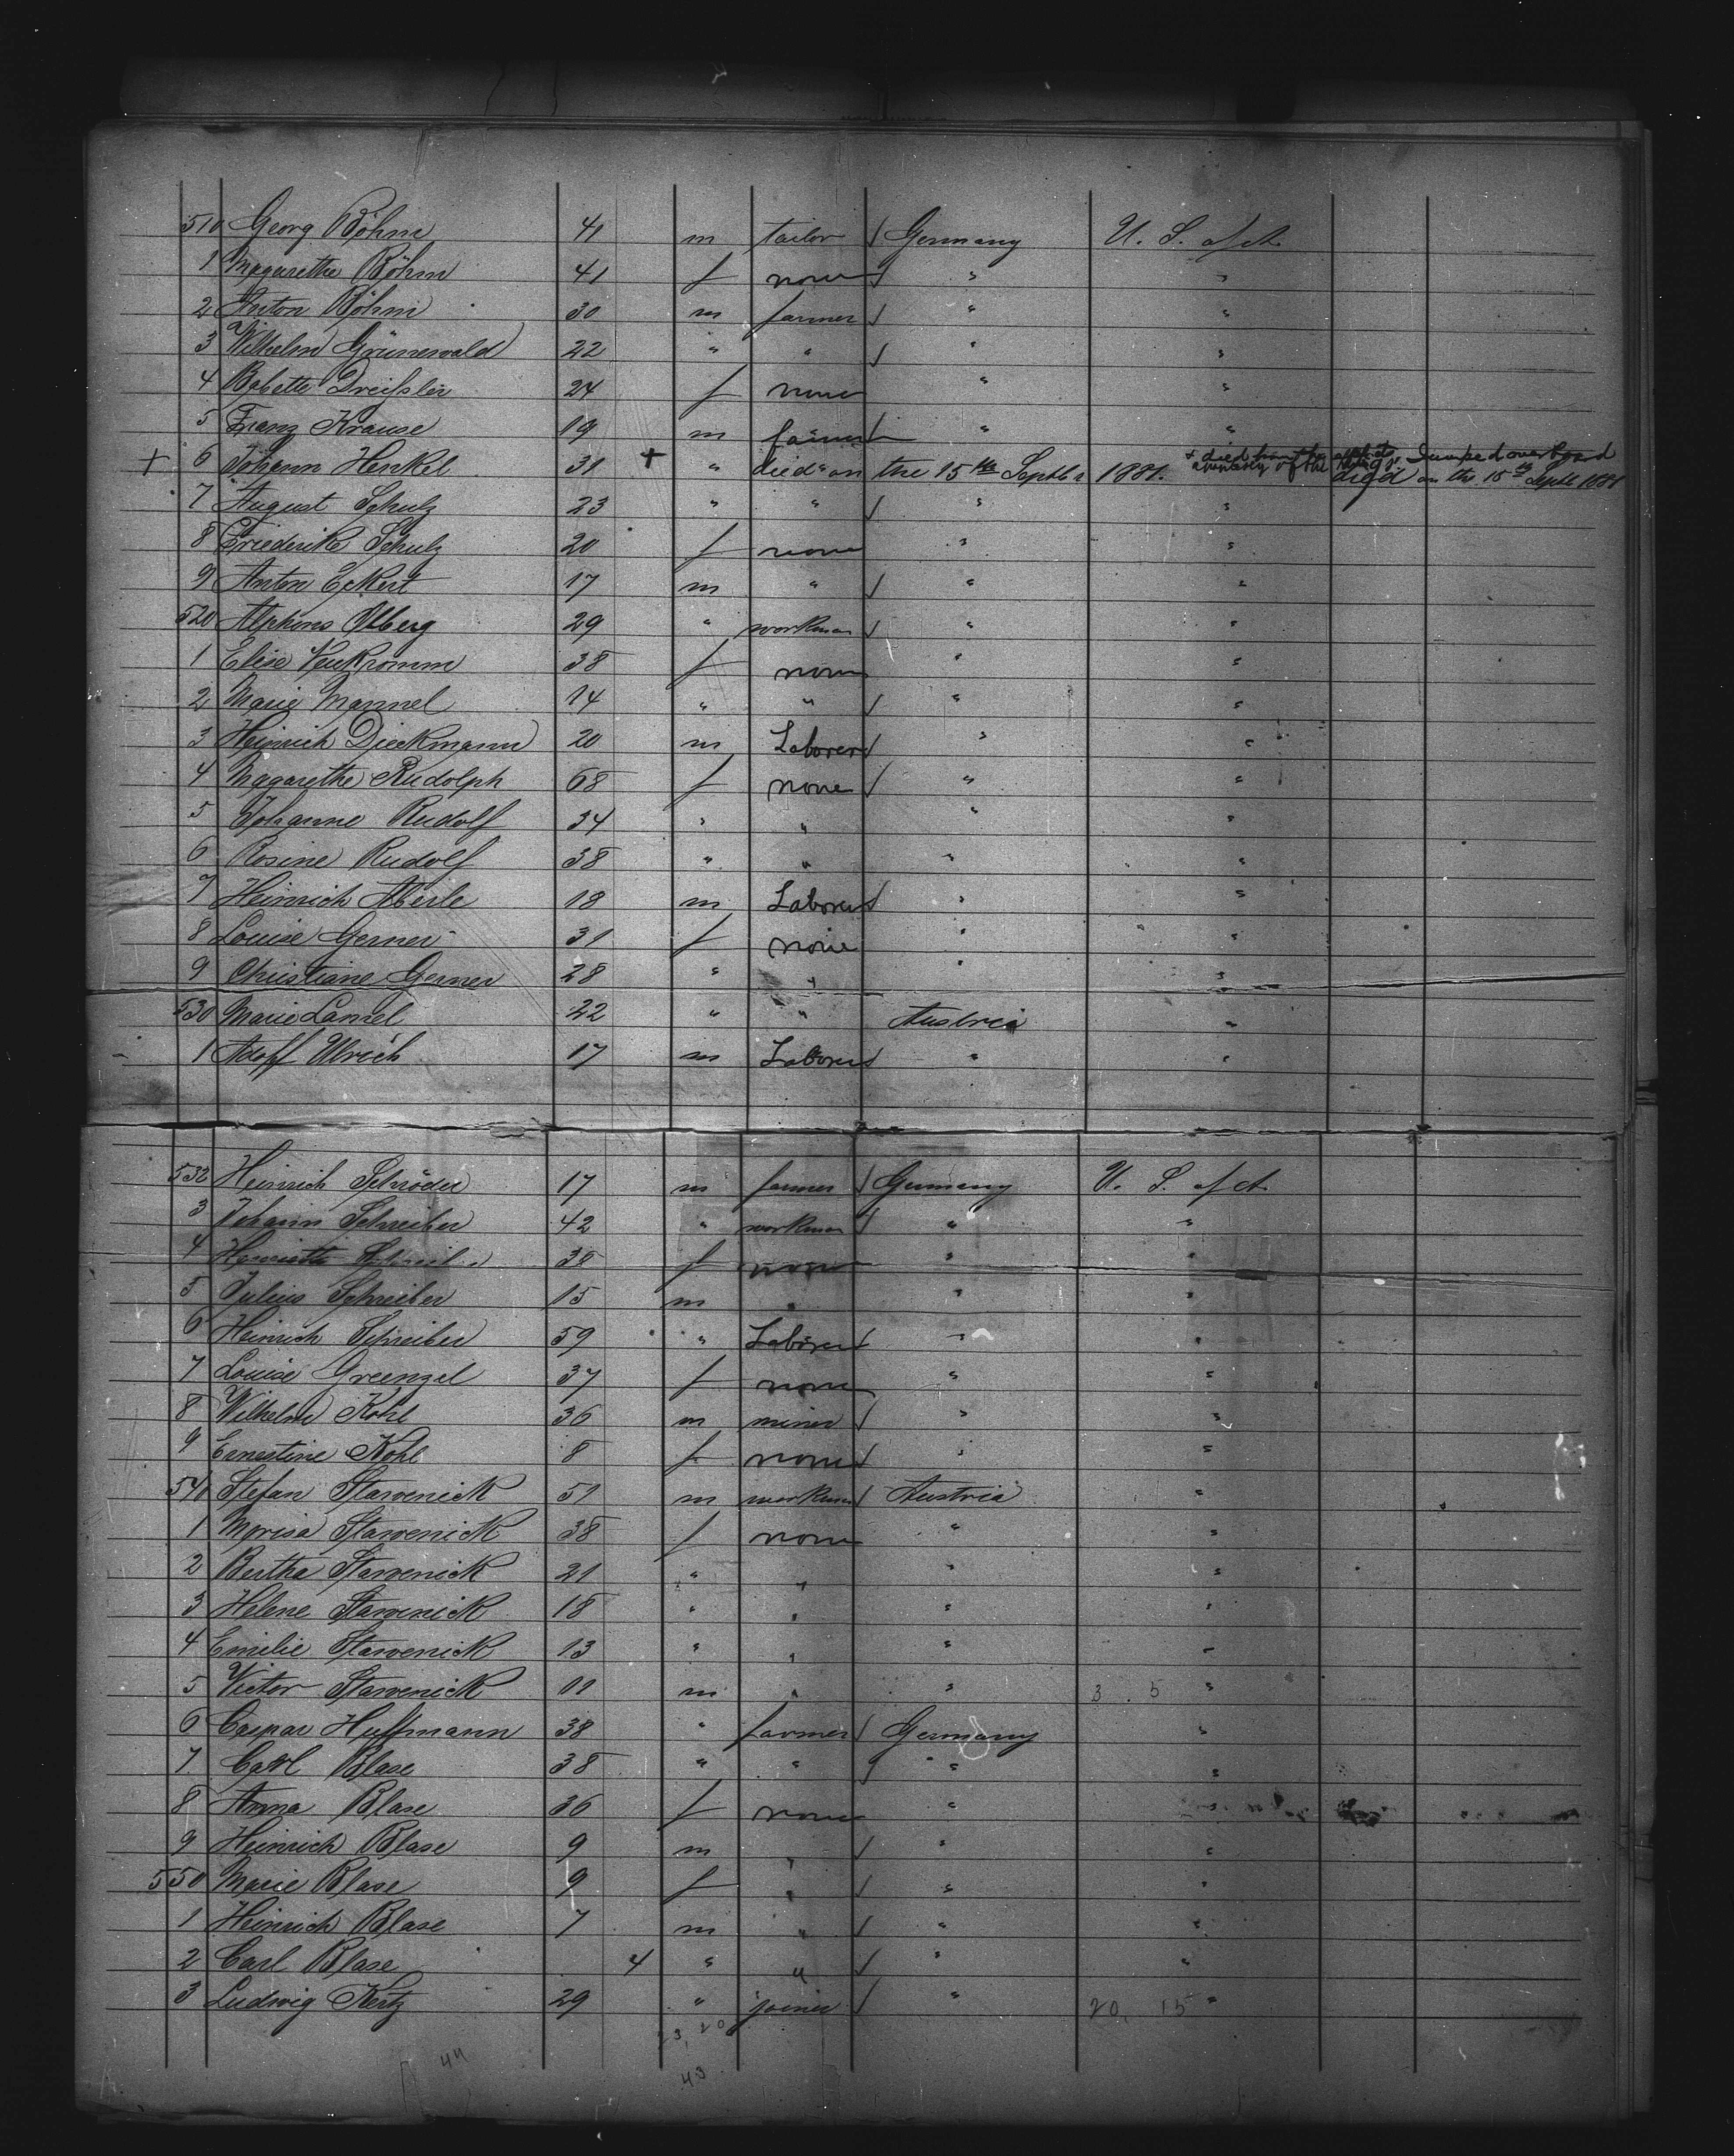 510 Georg Böhm 41 m tailor √ Germany U. S. of A.
1 Magarethe Böhm 41 f none √ " "
2 Anton Böhm 30 m farmer √ " "
3 Wilhelm Grünewald 22 " " √ " "
4 Babette Dreifsler 24 f none " "
5 Franz Krause 19 m farmer " "
+ 6 Johann Henkel 31 + " died on the 15th Septbr 1881. + died jumped overboard died on the 15th Septb 1881
7 August Schulz 23 " " √ " "
8 Friederike Schulz 20 f none " "
9 Anton Eckert 17 m " √ " "
520 Alphons Olberg 29 " workman √ " "
1 Elise Neukromm 38 f none " "
2 Marie Mannel 14 " " √ " "
3 Heinrich Dieckmann 20 m Laborer √ " "
4 Magarethe Rudolph 68 f none √ " "
5 Johanne Rudolf 34 " " " "
6 Rosine Rudolf 38 " " " "
7 Heinrich Aberle 18 m Laborer √ " "
8 Louise Gerner 31 f none " "
9 Christiane Gerner 28 " " " "
530 Marie Lansel 22 " " Austria "
1 Adolf Ulrich 17 m Laborer √ " "
532 Heinrich Schröder 17 m farmer √ Germany U. S. of A.
3 Johann Schreiber 42 " workman √ " "
4 Henriette 38 f none " "
5 Julius Schreiber 15 m " " "
6 Heinrich Schreiber 59 " Laborer √ " "
7 Louise Greenzel 37 f none " "
8 Wilhelm Kohl 36 m miner √ " "
9 Ernestine Kohl 8 f none √ " "
540 Stefan Stawenick 51 m workman √ Austria "
1 Morisa Stawenick 38 f none " "
2 Bertha Stawenick 21 " " " "
3 Helene Stawenick 18 " " " "
4 Emilie Stawenick 13 " " " "
5 Victor Stawenick 11 m " " 3. 5 "
6 Caspar Huffmann 38 " farmer √ Germany "
7 Carl Blase 38 " " √ " "
8 Anna Blase 36 f none " "
9 Heinrich Blase 9 m " √ " "
550 Marie Blase 9 f " √ " "
1 Heinrich Blase 7 m " √ " "
2 Carl Blase 4 " " √ " "
3 Ludwig Kertz 29 " joiner √ " 20, 15 "
23, 20
44 43